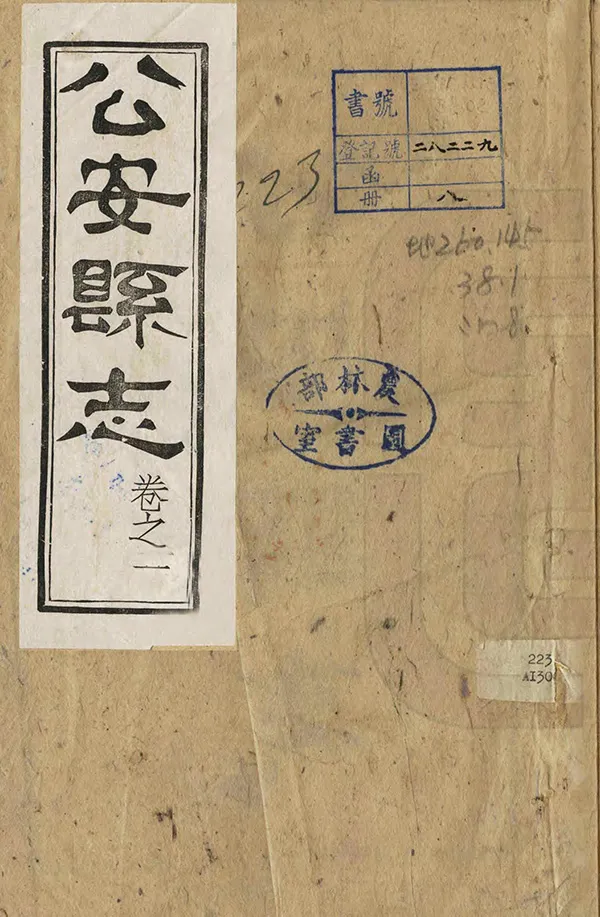 公安縣志
卷之一
書號
登記號 二八二二九
函
冊 八
223
地250.145
38.1
農林部
圖書室
223
AI30